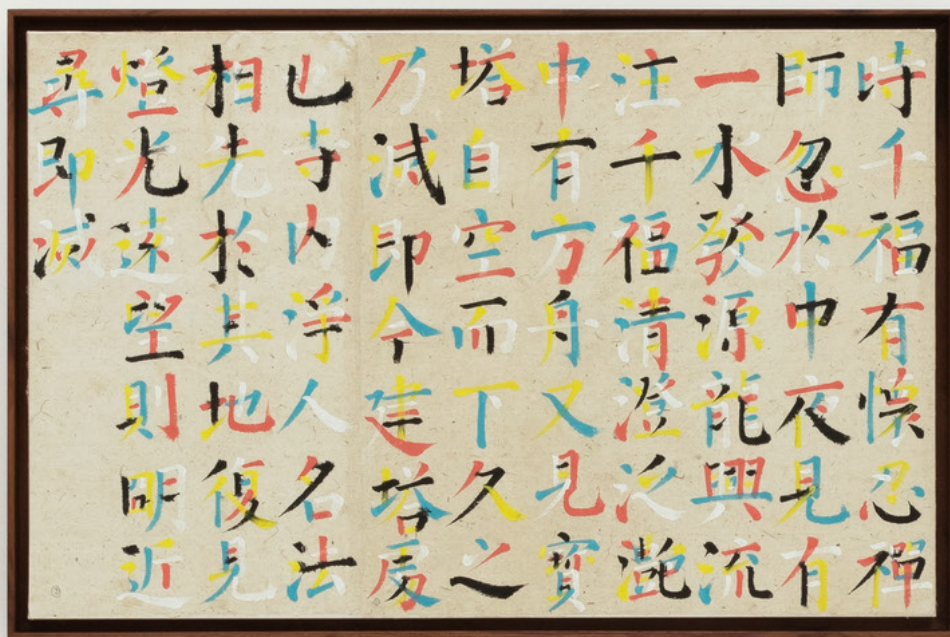 時千福有懷忍禪
師忽於中夜見有
一水發源龍興流
注千福清澄泛灎
中有方舟又見寶
塔自空而下久之
乃滅即今建塔處
也寺內淨人名法
相先於其地復見
燈光遠望則明近
尋即滅